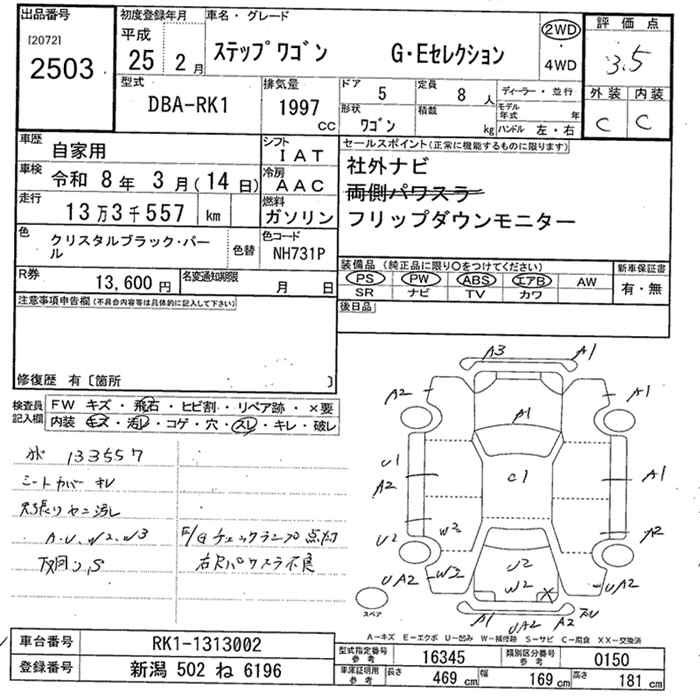 出品番号
[2072]
2503
初度登録年月
平成
25 年 2 月
車名・グレード
ステップワゴン G・Eセレクション
2WD
・
4WD
評価点
3.5
外装 内装
C C
型式
DBA-RK1
排気量
1997 CC
ドア 5
定員 8 人
形状 ワゴン
積載 kg
ディーラー・並行
モデル年式 年
ハンドル 左・右
車歴 自家用
車検 令和 8年 3月(14日)
走行 13万3千557 km
シフト IAT
冷房 AAC
燃料 ガソリン
色 クリスタルブラック・パール
色替
色コード NH731P
セールスポイント(正常に機能するものに限ります)
社外ナビ
両側パワスラ
フリップダウンモニター
R券 13,600円
名変通知期限 月 日
装備品(純正品に限り○をつけてください)
PS PW ABS エアB AW
SR ナビ TV カワ
新車保証書
有・無
後日品
注意事項申告欄(不具合内容等は具体的に記入して下さい)
修復歴 有〔箇所 〕
検査員記入欄
FW キズ・飛石・ヒビ割・リペア跡・×要
内装 キズ・汚レ・コゲ・穴・スレ・キレ・破レ
133557
シートカバーキレ
天張りヤニ汚レ
A.U.W2.W3
下廻り.S
E/Gチェックランプ点灯
右Rパワスラ不良
A3 A1
A2 A1
A1
U1 A2
C1
A1
U2 W3 A2
W3 U2 W2 X
UA2 UA2
A1 UA2 A2
スペア
A−キズ E−エクボ U−凹み W−補修跡 S−サビ C−腐食 XX−交換済
車台番号 RK1-1313002
登録番号 新潟 502 ね 6196
型式指定番号 参考 16345
類別区分番号 参考 0150
車庫証明用 参考 長さ 469 cm 幅 169 cm 高さ 181 cm